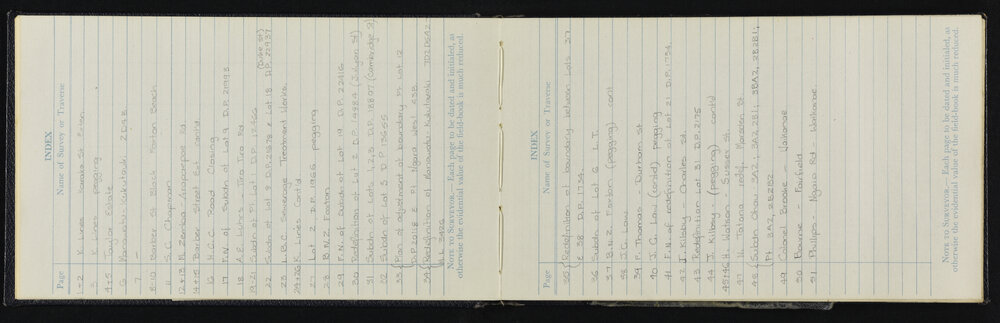 INDEX
Page Name of Survey or Traverse
1+2 K Lines Kanaka St
3 K Lines pegging
4+5 Taylor Estate
6 Manawatu-Kukutauaki 2D
7 —
8-10 Barber St Block Foxton Beach
11 S. C. Chapman
12+13 M. Zanna / Airoporpoe Rd
14+15 Barber Street Ext cont'd
16 H.C.C. Road Closing
17 F.N. of Subdn of Lot 9 D.P. 21993
18 A.F. Lines - Tiro Tiro Rd
19-21 Subdn of Pt Lot 1 D.P.
22 Subdn of Lot 8 D.P. 25679 & Lot 18 D.P. 22937 (Duke St)
23 L.B.C. Sewerage Treatment Works
24+26 K. Lines Cont'd
27 Lot 2 D.P. 1986 pegging
28 B.N.Z. Foxton
29 F.N. of Subdn of Lot 19 D.P. 22416
30 Redefinition of Lot 2 D.P. 14984
31 Subdn of Lots 1, 2, 3 D.P. 18807 (Cambridge St)
32 Subdn of Lot 3 D.P. 13685
33 Plan of adjustment of boundary Pt Lot 12
D.P. 20118 & Pt Ngara West
34 Redefinition of Manawatu-Kukutauaki 7D2D5A2
M.L. 3426
NOTE TO SURVEYOR.—Each page to be dated and initialed, as
otherwise the evidential value of the field-book is much reduced.
INDEX
Page Name of Survey or Traverse
35 Redefinition of boundary between Lots 37
& 38 D.P. 1734
36 Subdn of Lot 6 L.T.
37 B.N.Z. Foxton (pegging) cont
38 J.G. Law
39 P. Thomas - Durham St
40 J. G. Law (contd) pegging
41 F.N. of redefinition of Lot 21 D.P. 1734
42 J. Kilsby - Oxford St.
43 Redefinition Lot 31 D.P. 275
44 J. Kilsby - (pegging) contd
45+46 H. Watson - Sussex St
47 N. Tatana redef. Marsden St
48 Subdn Ohau 3A2, 3A2 2B1, 3BA2, 2B2B1,
Pt 3A2, 2B2B2
49 Colonel Brooke - Waitarae
50 Bourne - Fairfield
51 Phillips - Ngaio Rd Waikanae
NOTE TO SURVEYOR.—Each page to be dated and initialed, as
otherwise the evidential value of the field-book is much reduced.